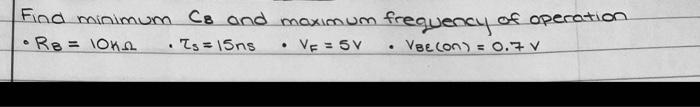 Find minimum CB and maximum frequency of operation
• RB = 10kΩ • τs = 15ns • VF = 5V • VBE(on) = 0.7 V